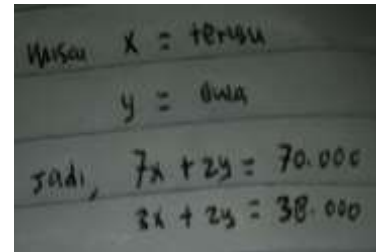 Misal x = terigu
y = gula
Jadi, 7x + 2y = 70.000
3x + 2y = 38.000